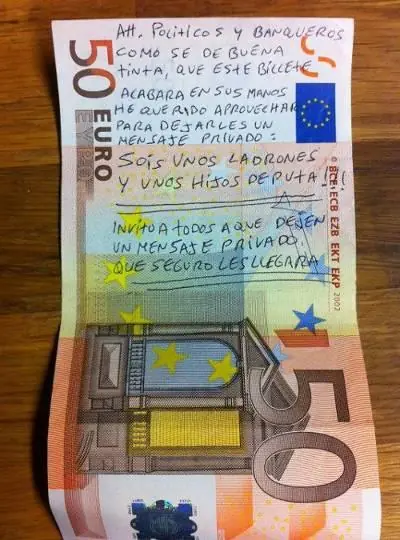 Att. POLITICOS Y BANQUEROS
COMO SE DE BUENA
TINTA, QUE ESTE BILLETE
ACABARA EN SUS MANOS
HE QUERIDO APROVECHAR
PARA DEJARLES UN
MENSAJE PRIVADO:
SOIS UNOS LADRONES
Y UNOS HIJOS DEPUTA!!!
INVITO A TODOS A QUE DEJEN
UN MENSAJE PRIVADO,
QUE SEGURO LES LLEGARA
50 EURO
ΕΥΡΩ
© BCE ECB EZB EKT EKP 2002
50